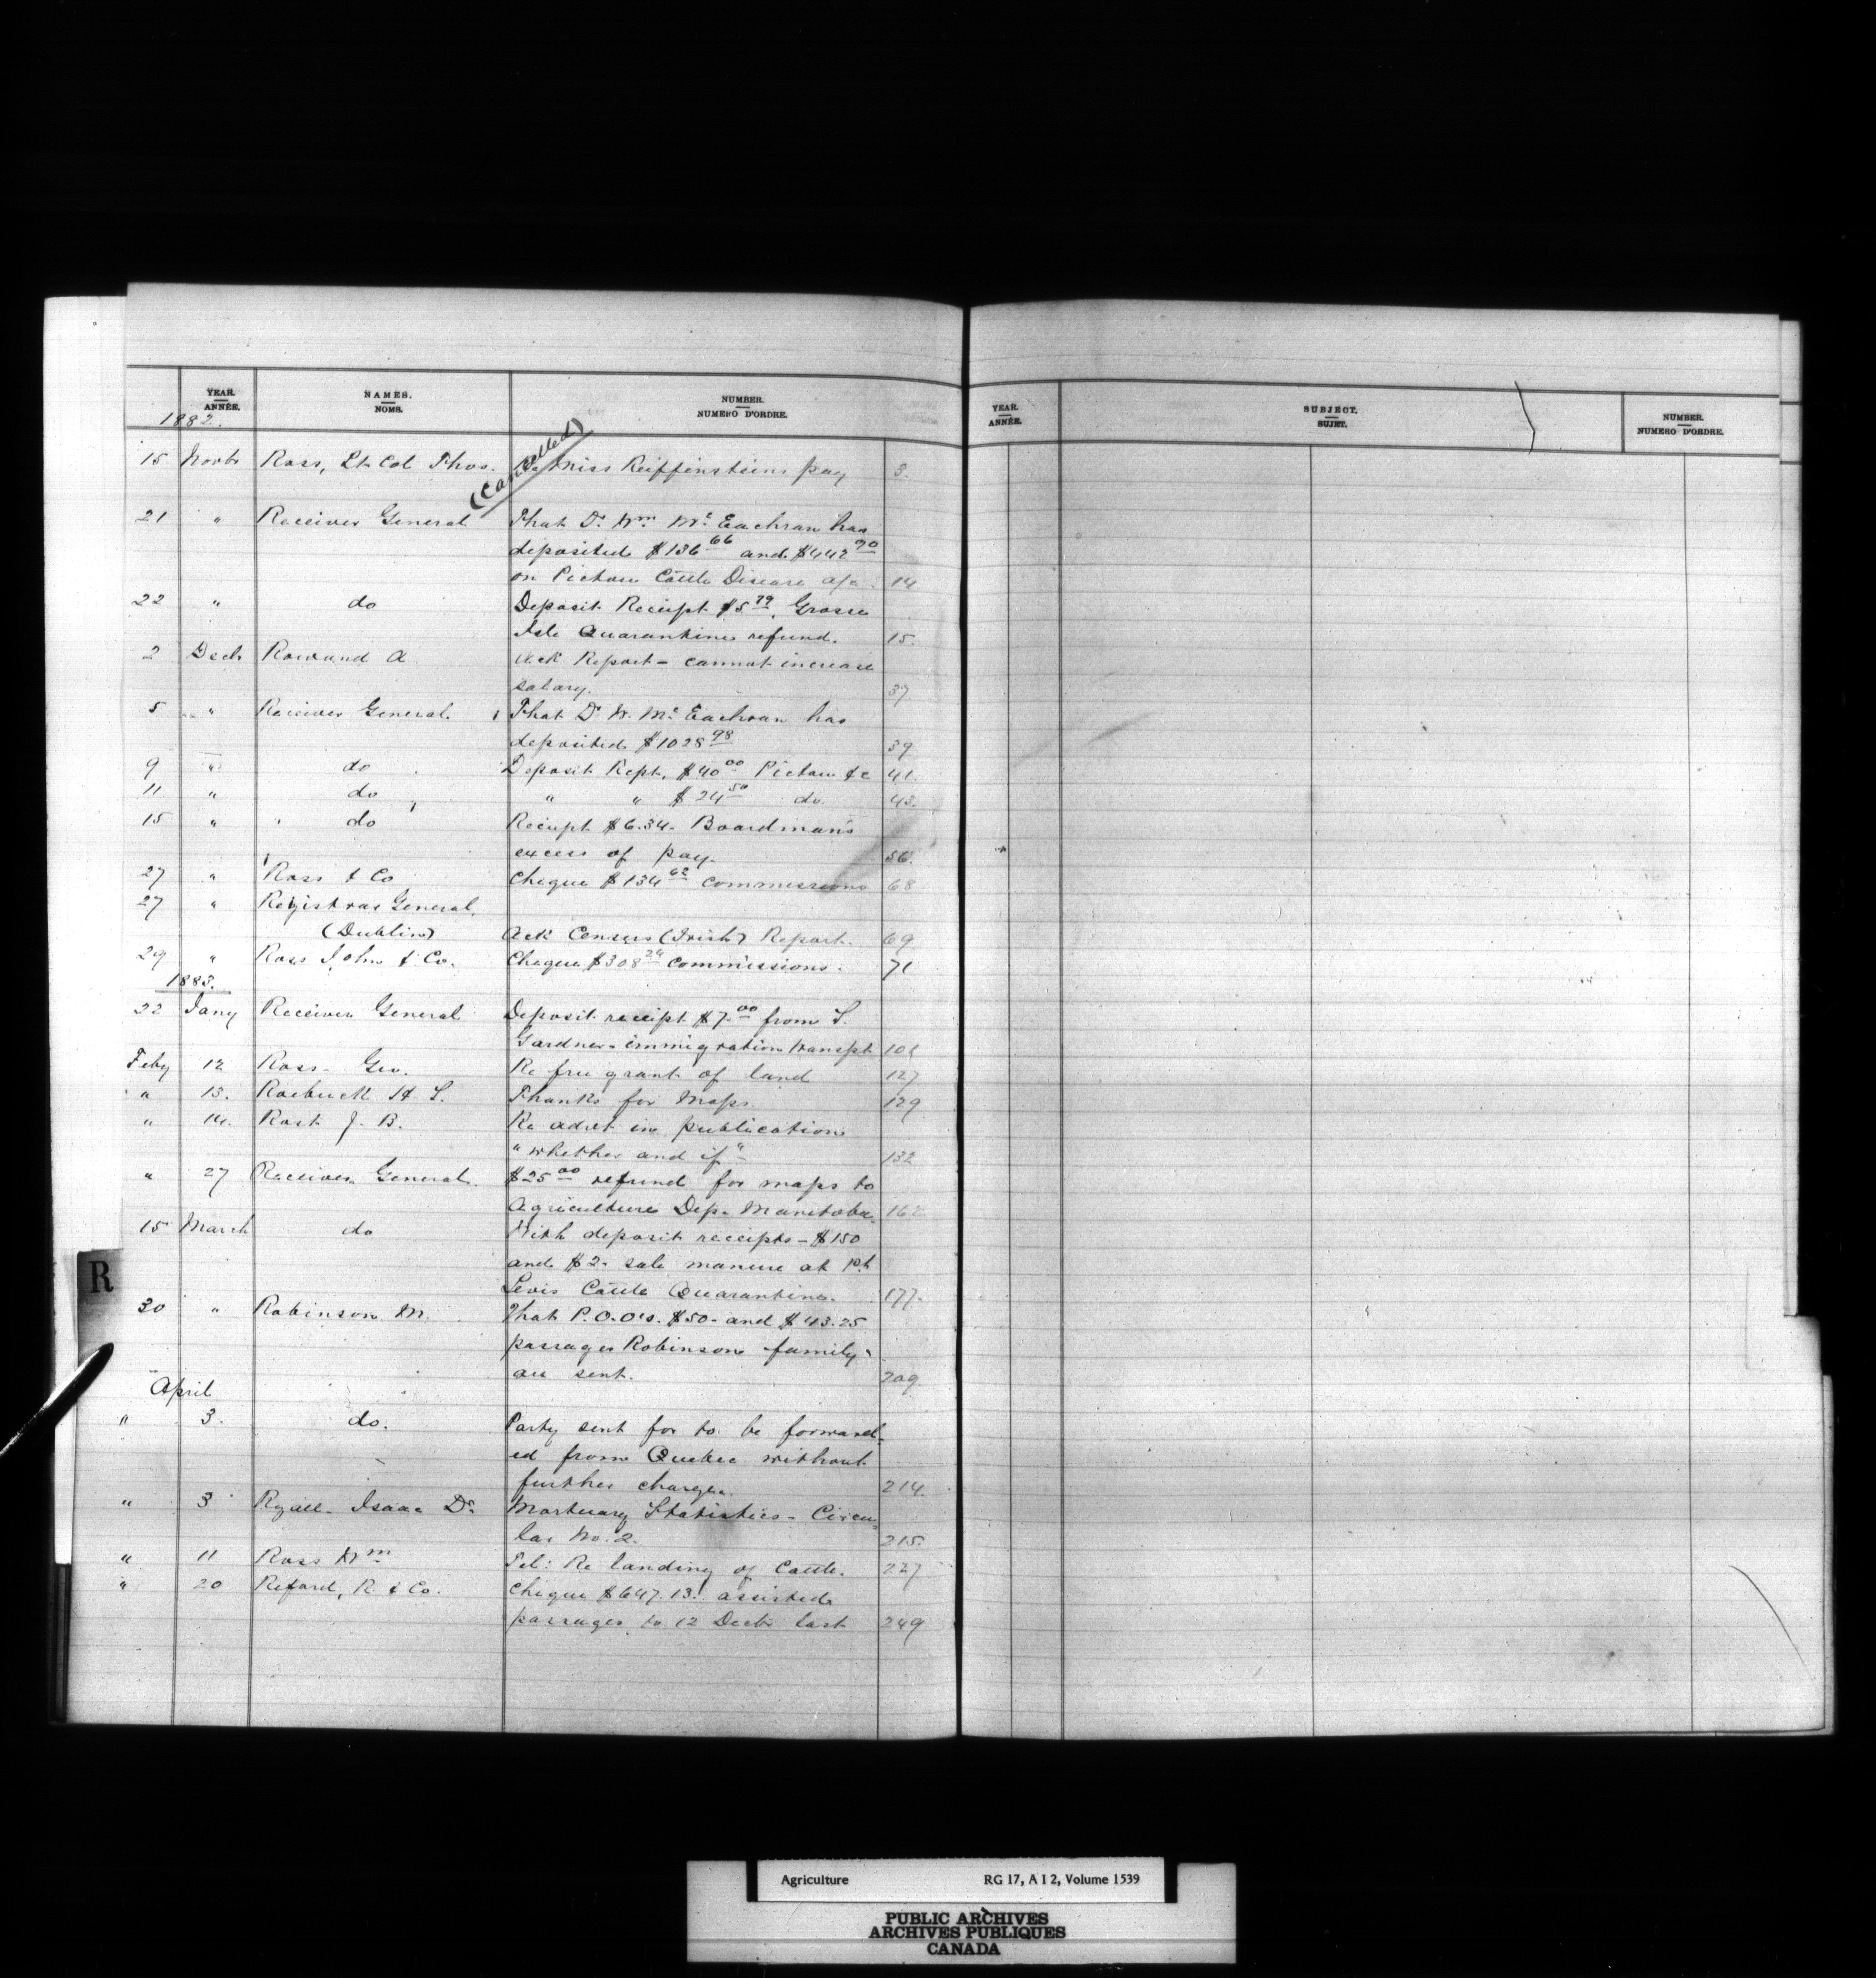 YEAR. NAMES. NUMBER. YEAR. SUBJECT. NUMBER.
ANNÉE. NOMS. NUMERO D'ORDRE. ANNÉE. SUJET. NUMERO D'ORDRE.
1882.
(Cancelled)
15 Novbr Ross, Lt Col Thos. Re Miss Reiffensteins pay 3.
21 " Receiver General That Dr Wm McEachran has
deposited $136.66 and $442.90
on Pictou Cattle Disease a/c. 14.
22 " do Deposit Receipt $5.79. Grosse
Isle Quarantine refund. 15.
2 Decb Rowand A. Ack Report - cannot increase
salary. 37
5 " Receiver General. That Dr W. McEachran has
deposited $1028.98 39
9 " do Deposit Rept, $40.00 Pictou &c 41.
11 " do " " $24.50 do. 43.
15 " do Receipt $6.34. Boardman's
excess of pay. 56.
27 " Ross & Co Cheque $134.62 commissions 68
27 " Registrar General,
(Dublin) Ack Census (Irish) Report. 69
29 " Ross John & Co. Cheque $308.24 commissions. 71
1883.
22 Jany Receiver General Deposit receipt $7.00 from S.
Gardner - immigration transpt 101
Feby 12 Ross - Geo. Re free grant of land 127
" 13. Roebuck H. S. Thanks for Maps. 129
" 14. Rost J. B. Re advt in publication
"whether and if" 132
" 27 Receiver General. $25.00 refund for maps to
Agriculture Dep. Manitoba. 162
15 March do With deposit receipts - $150
and $2. sale manure at Pt
Levis Cattle Quarantine. 177.
R
30 " Robinson M. That P.O.O's. $50. and $43.25
passages Robinson family
are sent. 209
April
" 3. do. Party sent for to be forward-
ed from Quebec without
further charge. 214.
" 3 Ryall - Isaac Dr Mortuary Statistics - Circu-
lar No. 2. 215.
" 11 Ross Wm Tel: Re landing of Cattle. 227
" 20 Reford, R & Co. Cheque $647.13 assisted
passages to 12 Decbr last 249
Agriculture RG 17, A I 2, Volume 1539
PUBLIC ARCHIVES
ARCHIVES PUBLIQUES
CANADA